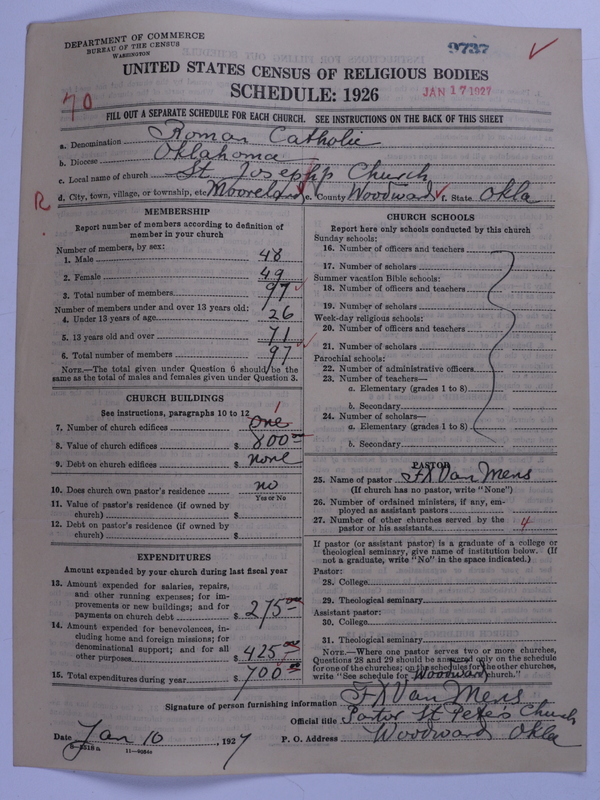 DEPARTMENT OF COMMERCE
BUREAU OF THE CENSUS
WASHINGTON
9737
UNITED STATES CENSUS OF RELIGIOUS BODIES
SCHEDULE: 1926
JAN 17 1927
70
FILL OUT A SEPARATE SCHEDULE FOR EACH CHURCH. SEE INSTRUCTIONS ON THE BACK OF THIS SHEET
a. Denomination Roman Catholic
b. Diocese Oklahoma
c. Local name of church St. Joseph's Church
R
d. City, town, village, or township, etc. Mooreland e. County Woodward f. State Okla
MEMBERSHIP
Report number of members according to definition of
member in your church
Number of members, by sex:
1. Male 48
2. Female 49
3. Total number of members 97
Number of members under and over 13 years old:
4. Under 13 years of age 26
5. 13 years old and over 71
6. Total number of members 97
NOTE.—The total given under Question 6 should be the
same as the total of males and females given under Question 3.
CHURCH BUILDINGS
See instructions, paragraphs 10 to 12
1
7. Number of church edifices one
8. Value of church edifices $ 800
9. Debt on church edifices $ none
10. Does church own pastor's residence no
Yes or No
11. Value of pastor's residence (if owned by
church) $
12. Debt on pastor's residence (if owned by
church) $
EXPENDITURES
Amount expended by your church during last fiscal year
13. Amount expended for salaries, repairs,
and other running expenses; for im-
provements or new buildings; and for
payments on church debt $ 275
14. Amount expended for benevolences, in-
cluding home and foreign missions; for
denominational support; and for all
other purposes $ 425
15. Total expenditures during year $ 700
CHURCH SCHOOLS
Report here only schools conducted by this church
Sunday schools:
16. Number of officers and teachers
17. Number of scholars
Summer vacation Bible schools:
18. Number of officers and teachers
19. Number of scholars
Week-day religious schools:
20. Number of officers and teachers
21. Number of scholars
Parochial schools:
22. Number of administrative officers
23. Number of teachers—
a. Elementary (grades 1 to 8)
b. Secondary
24. Number of scholars—
a. Elementary (grades 1 to 8)
b. Secondary
PASTOR
25. Name of pastor FX Van Mens
(If church has no pastor, write "None")
26. Number of ordained ministers, if any, em-
ployed as assistant pastors
27. Number of other churches served by the
pastor or his assistants 4
If pastor (or assistant pastor) is a graduate of a college or
theological seminary, give name of institution below. (If
not a graduate, write "No" in the space indicated.)
Pastor:
28. College
29. Theological seminary
Assistant pastor:
30. College
31. Theological seminary
NOTE.—Where one pastor serves two or more churches,
Questions 28 and 29 should be answered only on the schedule
for one of the churches; on the schedules for the other churches,
write "See schedule for Woodward church."
Signature of person furnishing information FX Van Mens
Official title Pastor St Peter's Church
Date Jan 10, 1927 P. O. Address Woodward Okla